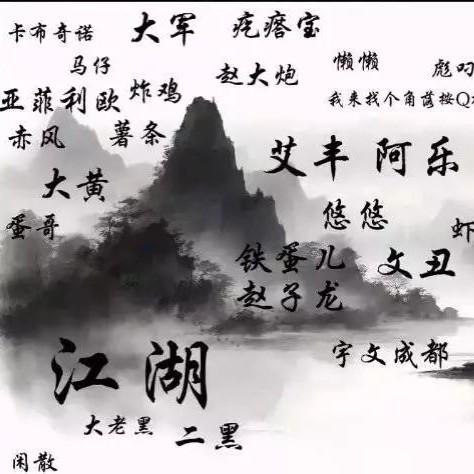 卡布奇诺
大军
疙瘩宝
懒懒
马仔
赵大炮
彪叼
亚菲利欧
炸鸡
我来找个角落按Q
赤风
薯条
艾丰
阿乐
大黄
悠悠
蛋哥
虾
铁蛋儿
文丑
赵子龙
江湖
宇文成都
大老黑
二黑
闲散